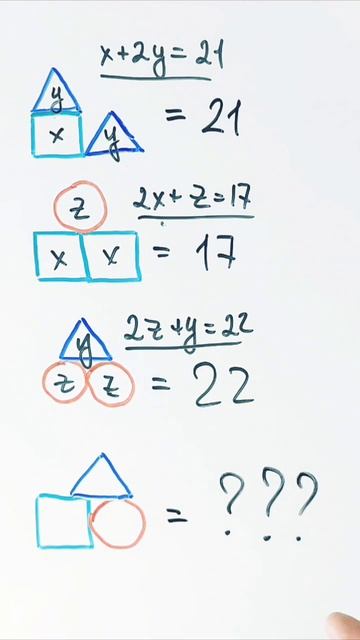 x+2y=21
y
x y = 21
z
2x+z=17
x x = 17
y 2z+y=22
z z = 22
= ???